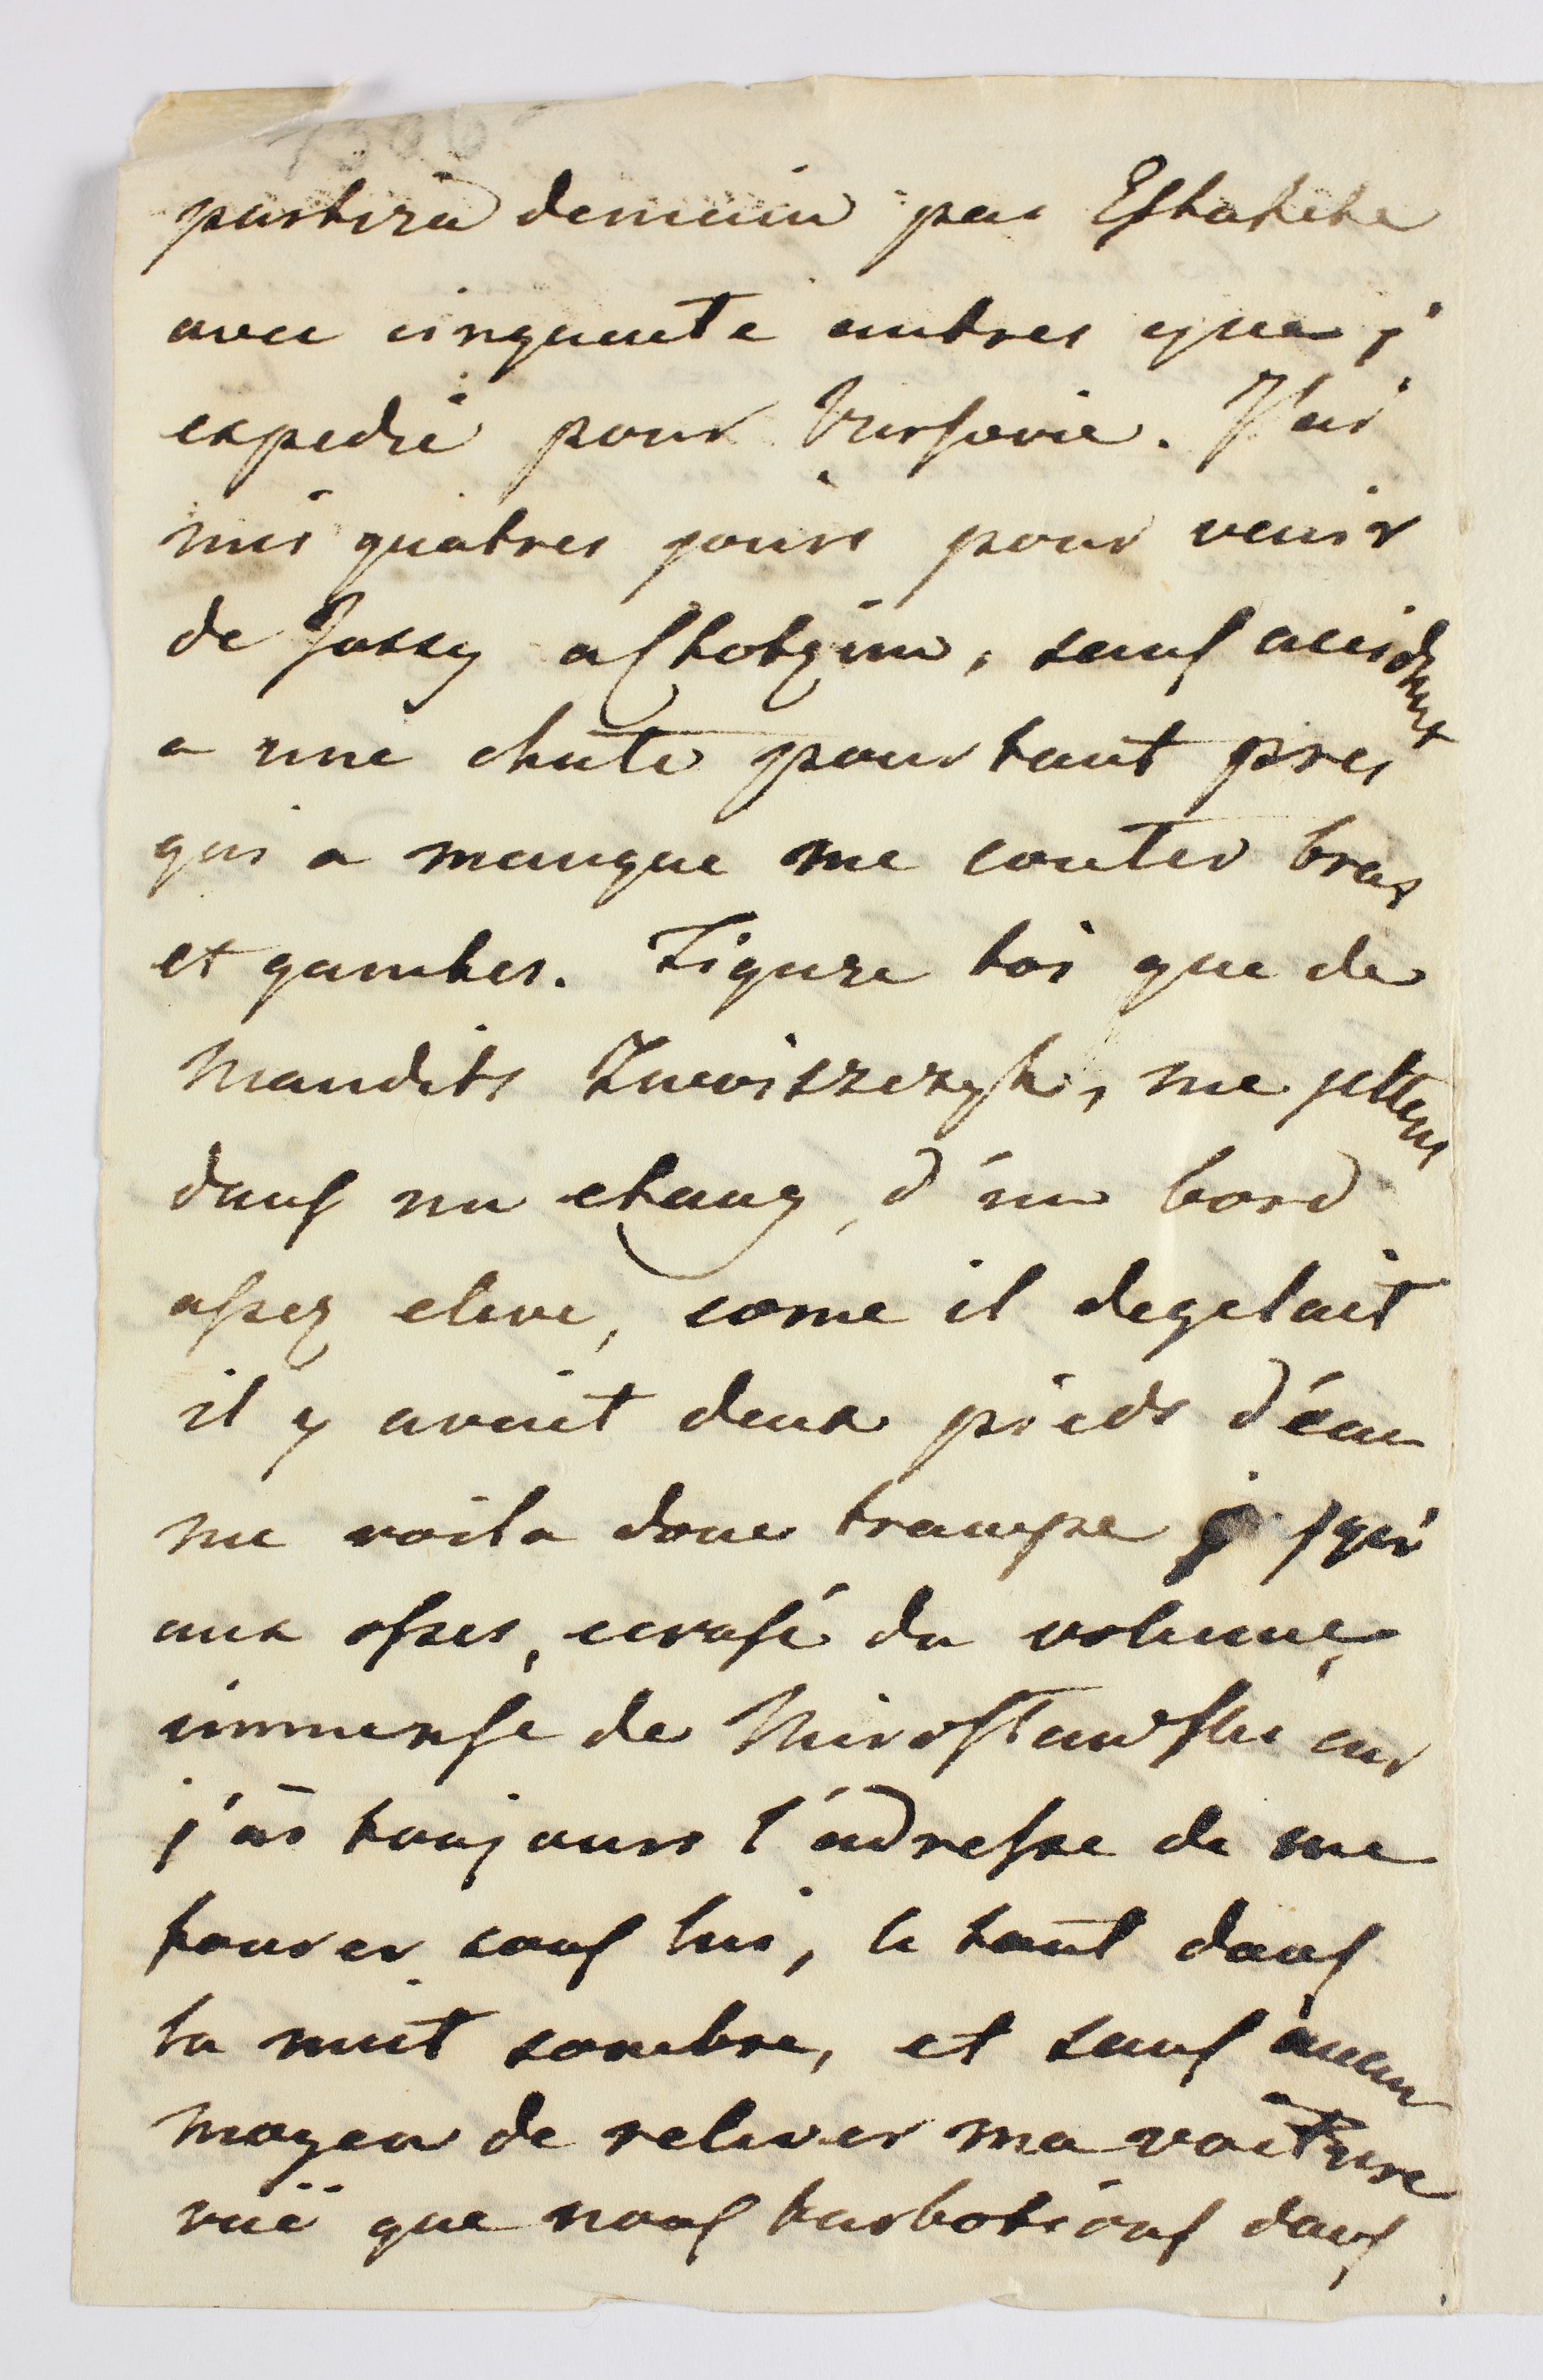 partira demain par Estafete
avec cinquante autres que j'
expedie pour Varsovie. J'ai
mis quatres jours pour venir
de Jassy a Chotzim, sauf accident
a une chute pourtant pres
qui a manque me couter bras
et gambes. Figure toi que de
Maudits me jettent
dans un etang, d'un bord
assez eleve, come il degelait
il y avait deux pieds d'eau
me voila donc trampe jsqu'
aux osses, ecrasé du volume
immense de Mirosławski car
j'ai toujours l'adresse de me
trouver sous lui, le tout dans
la nuit sombre, et sans aucun
moyen de relever ma voiture
vuë que nous barbotions dans